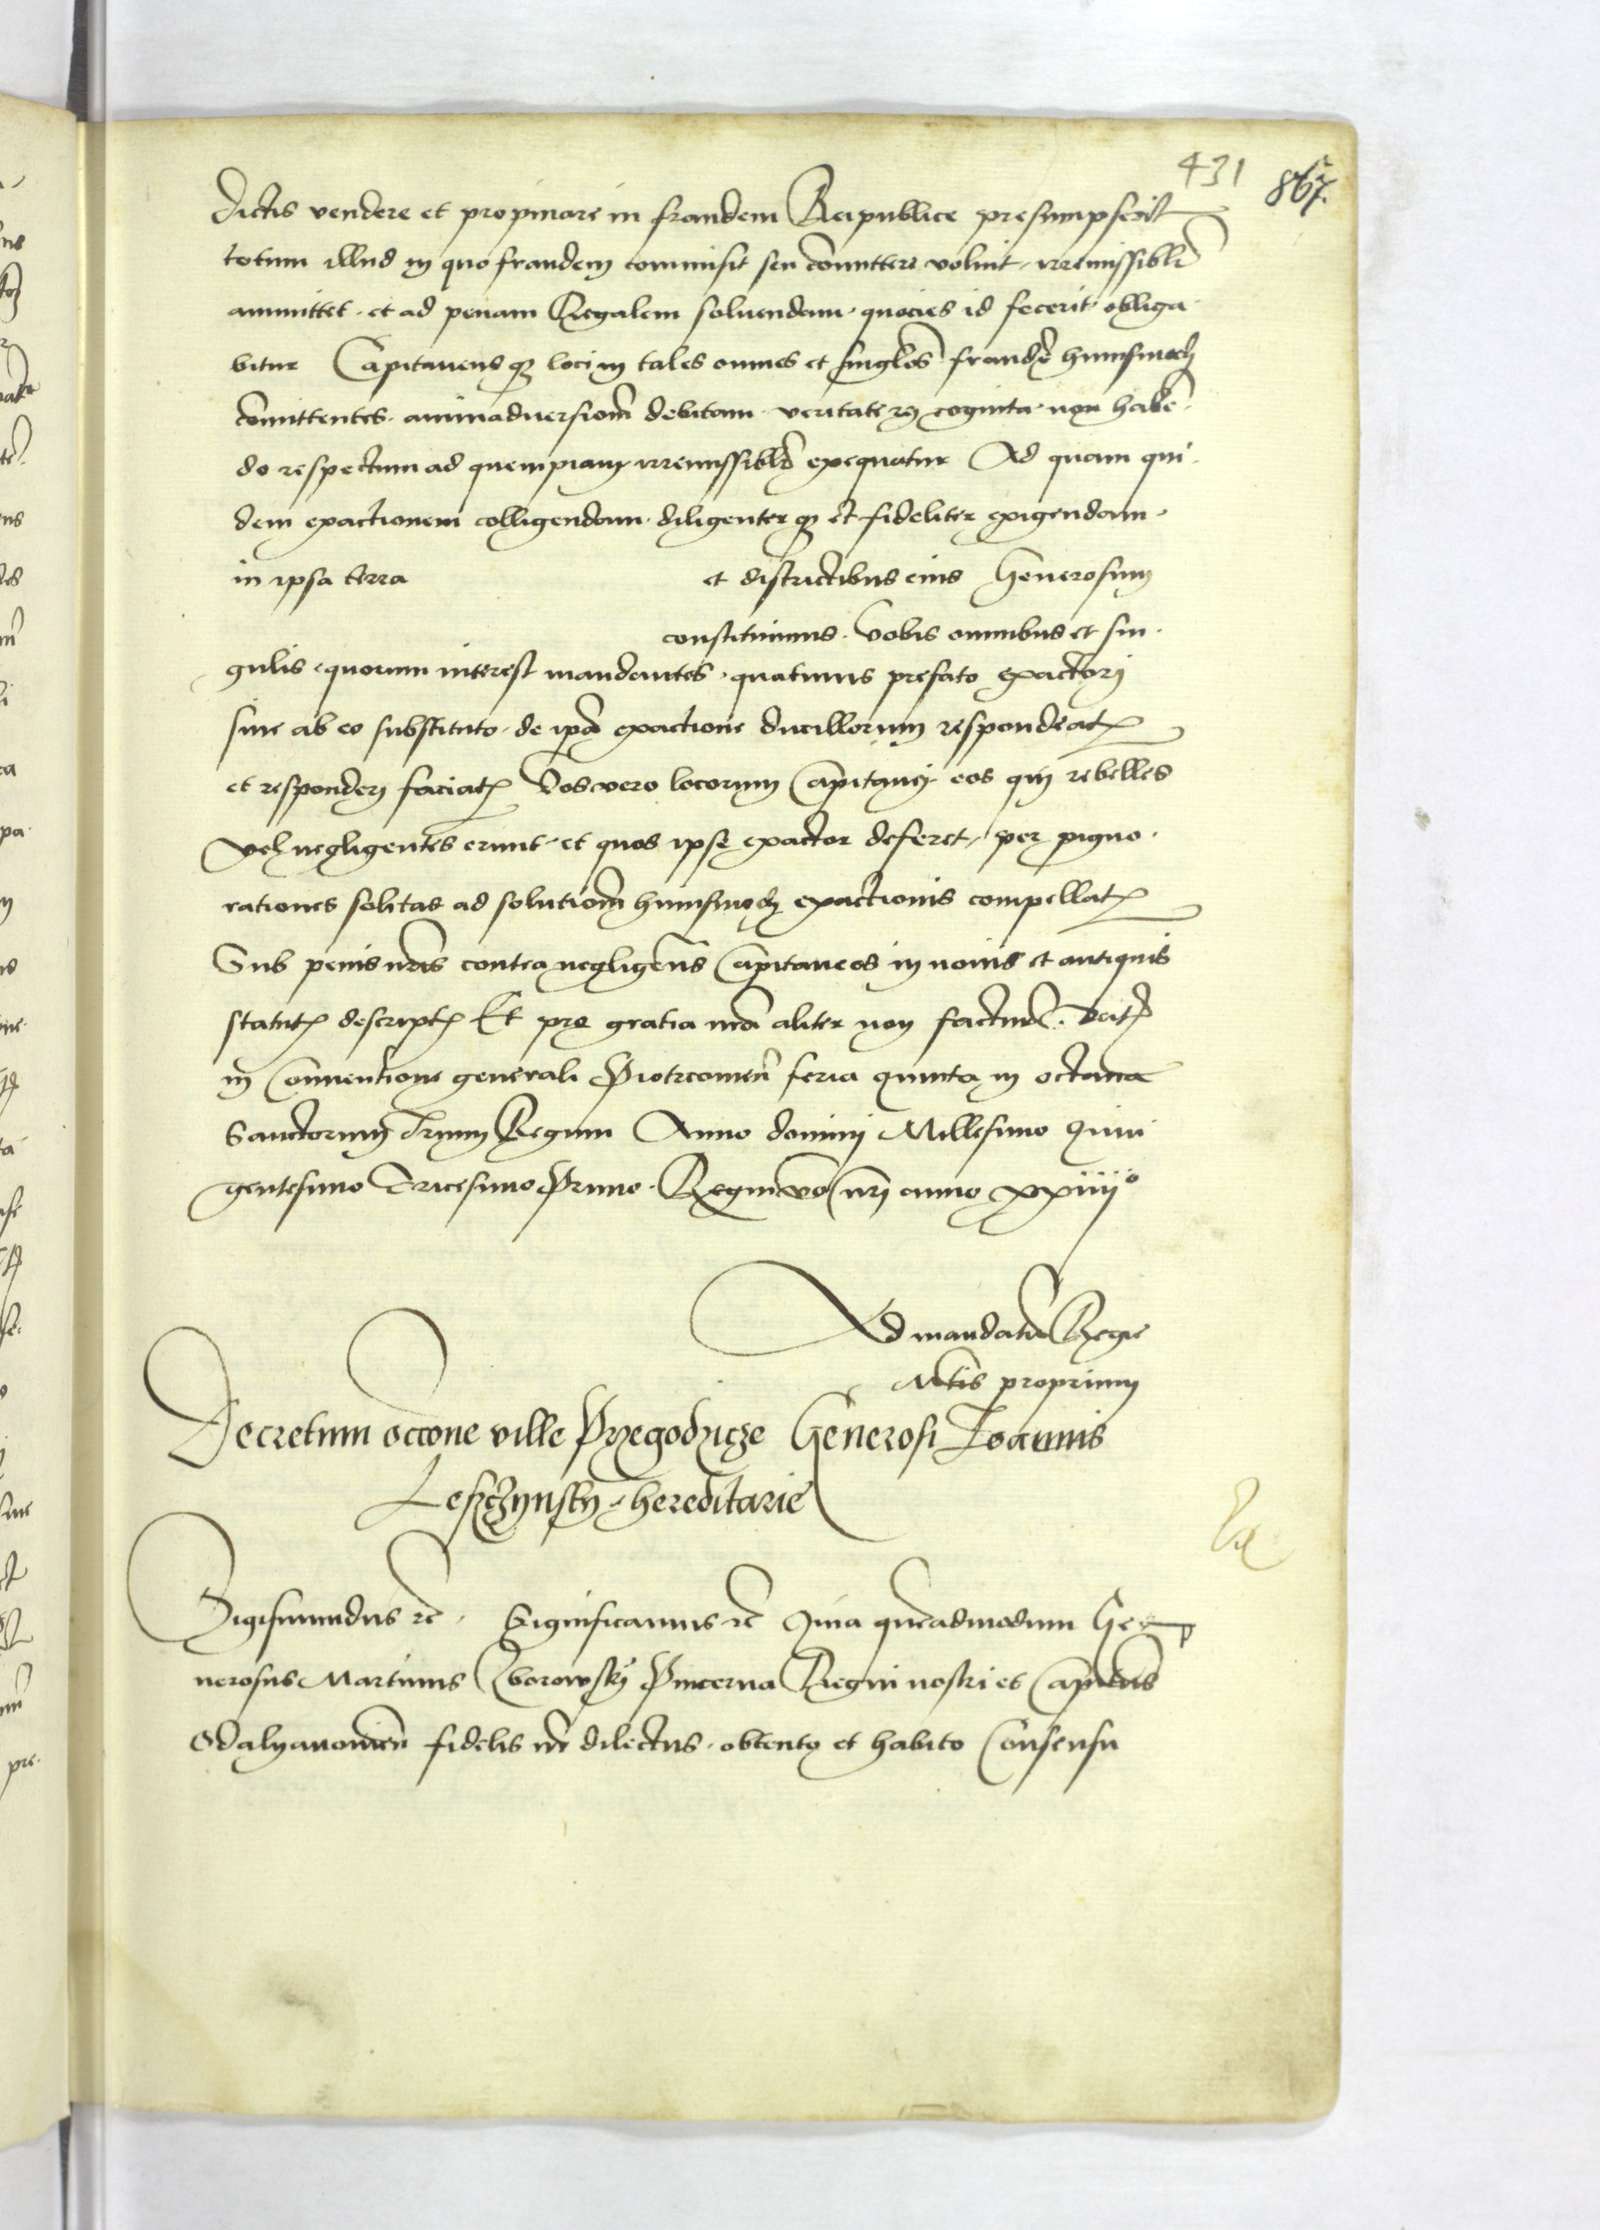 431 867.
dictis vendere et propinare in fraudem Reipublice presumpserit
totum illud in quo fraudem commisit seu comittere voluit irremissiblr
ammittet · et ad penam Regalem soluendam · quocies id fecerit obliga
bitur Capitaneus q loci in tales omnes et singlos fraude huiusmodi
comittentes · animaduersiom debitam veritate rei cognita non haben
do respectum ad quempiam irremissiblr exequatur Ad quam qui
dem exactionem colligendam · diligenter q et fideliter exigendam ·
in ipsa terra et districtibus eius Generosum
constituimus · Vobis omnibus et sin
gulis quorum interest mandantes · quatinus prefato exactori
siue ab eo substituto · de ipa exactione ducillorum respondeatis
et responderi faciatis Vos vero locorum Capitanei eos qui rebelles
vel negligentes erunt · et quos ipse exactor deferet, per pigno
rationes solitas ad solutiom huiusmodi exactionis compellatis
Sub penis nris contra negligens Capitaneos in nouis et antiquis
statutis descriptis Et pro gratia nra aliter non factur. Datum
in Conuentione generali Piotrcouien feria quinta in octaua
Sanctorum Trium Regum Anno domini Millesimo Quin
gentesimo Tricesimo Primo · Regni vo nri anno xxiiiiº
Ad mandatu Regie
Mtis proprium
Decretum occone ville Przegodzicze Generosi Joannis
Leszczynsky · hereditarie
Sigismundus rc · Significamus rc Quia quemadmodum Ge
nerosus Martinus Zborowsky Pincerna Regni nostri et Capitaneus
Odalyanouien fidelis nr dilectus · obtento et habito Consensu